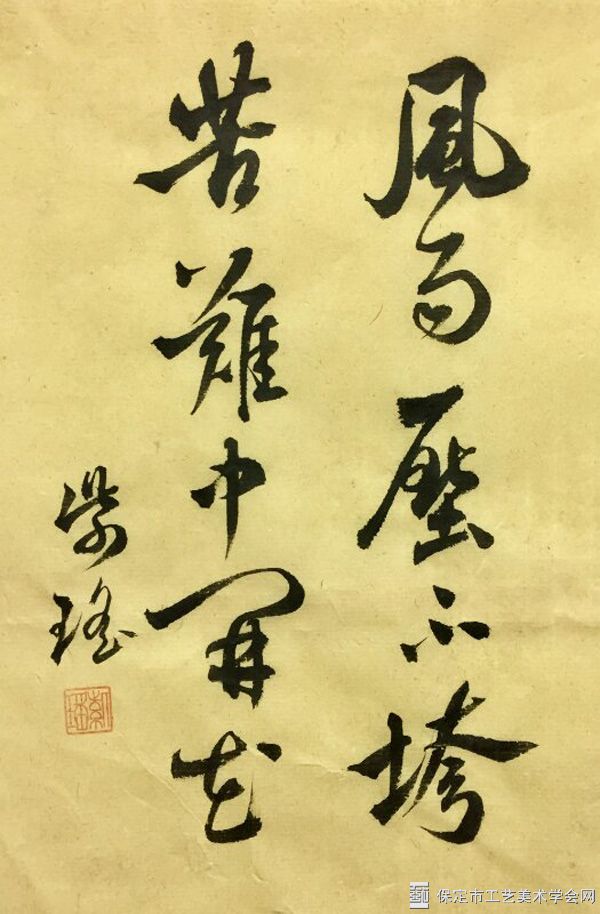 風雨壓不垮
苦難中開花
紫瑤
保定市工艺美术学会网